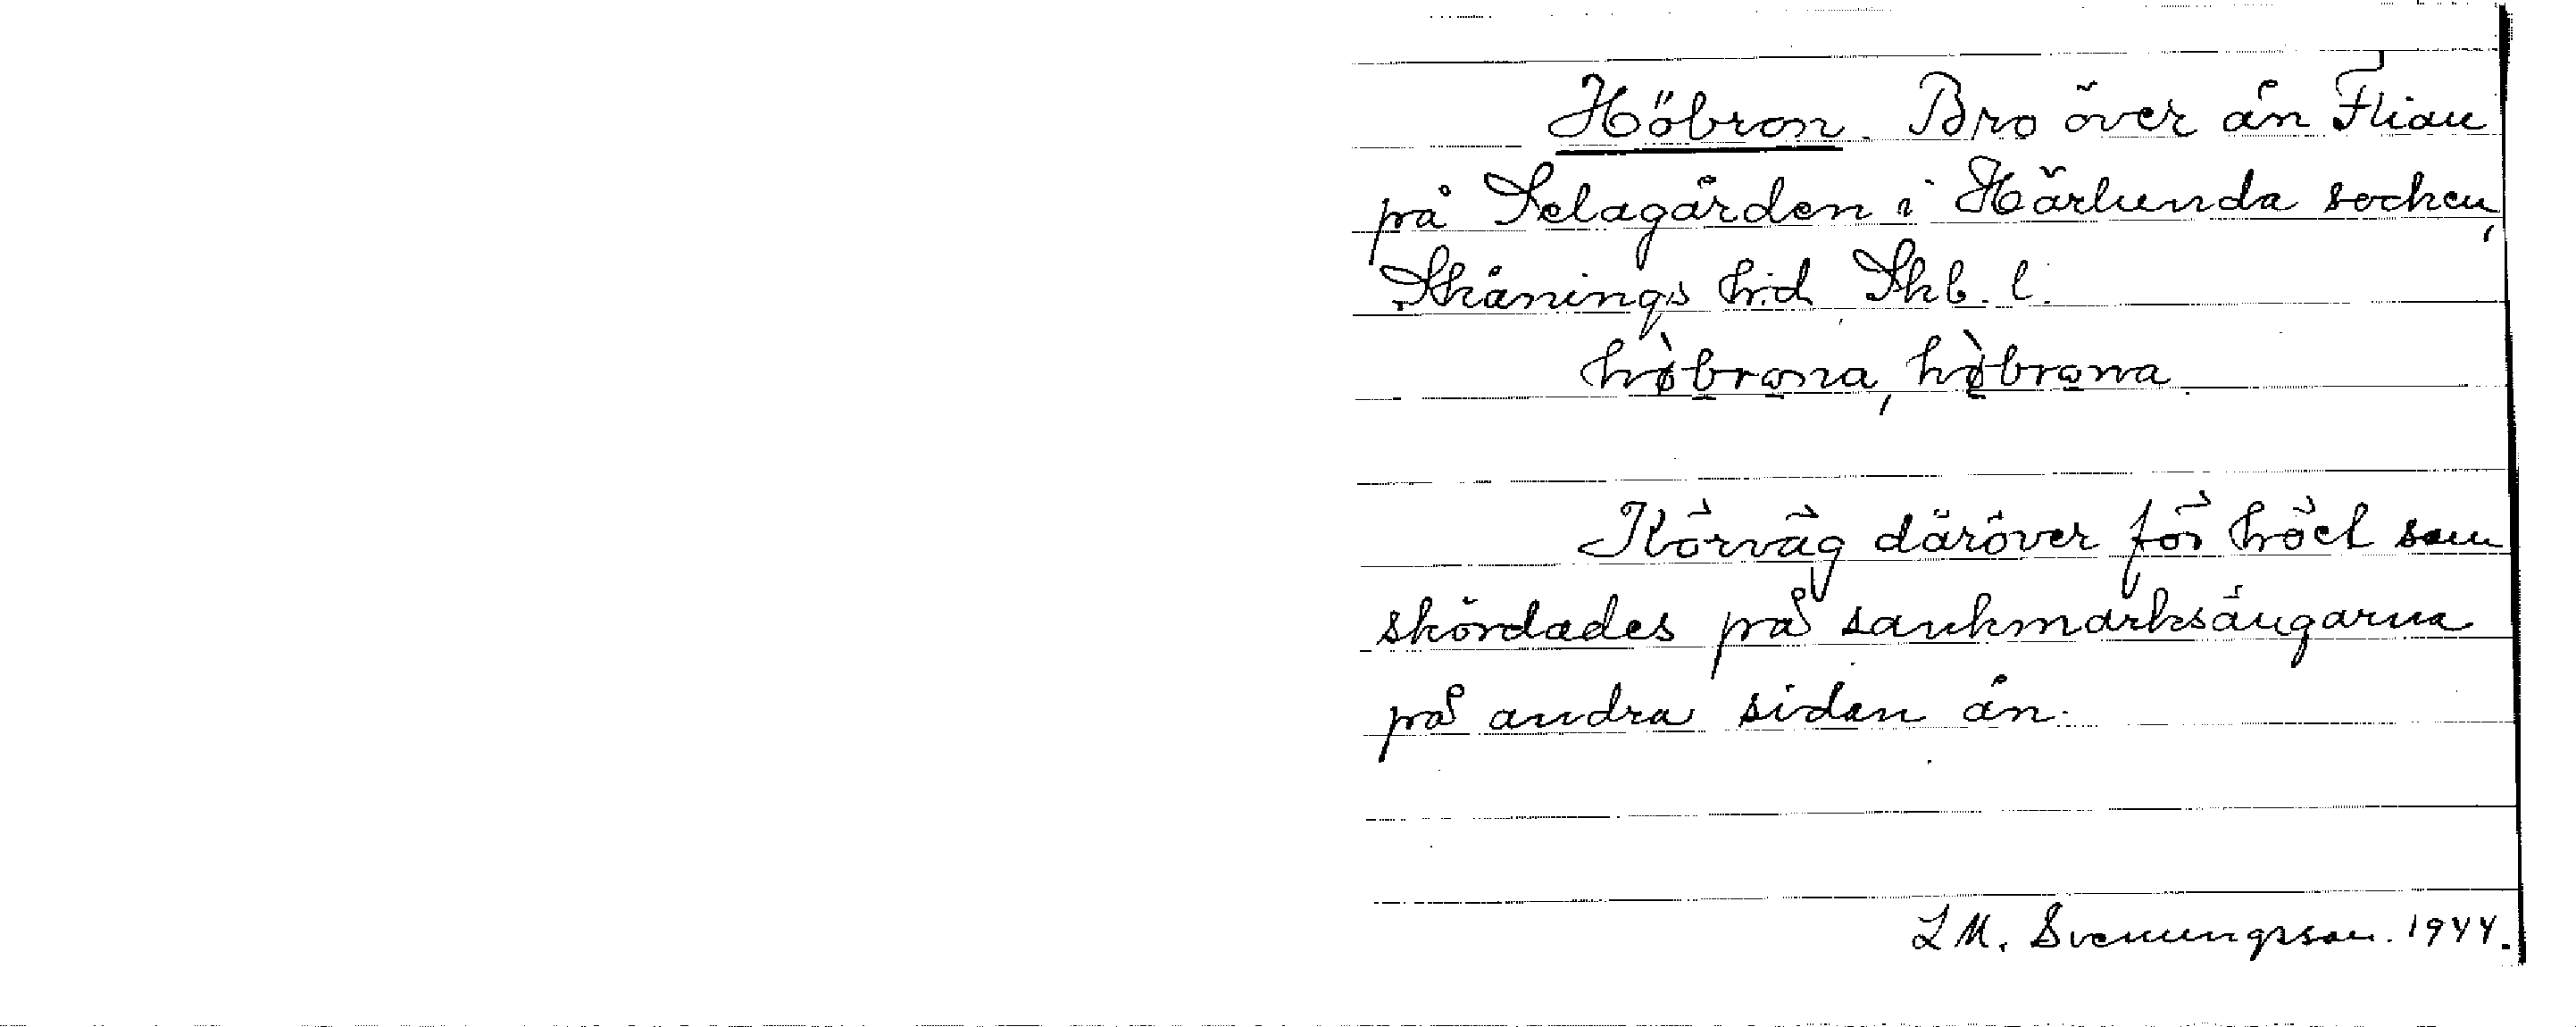 Höbron. Bro över ån Flian
på Selagården i Härlunda socken,
Skånings h:d Skb. l.
hø̀brona, hø̀brona
Körväg däröver för höet som
skördades på sankmarksängarna
på andra sidan ån.
L M. Svenungsson. 1944.